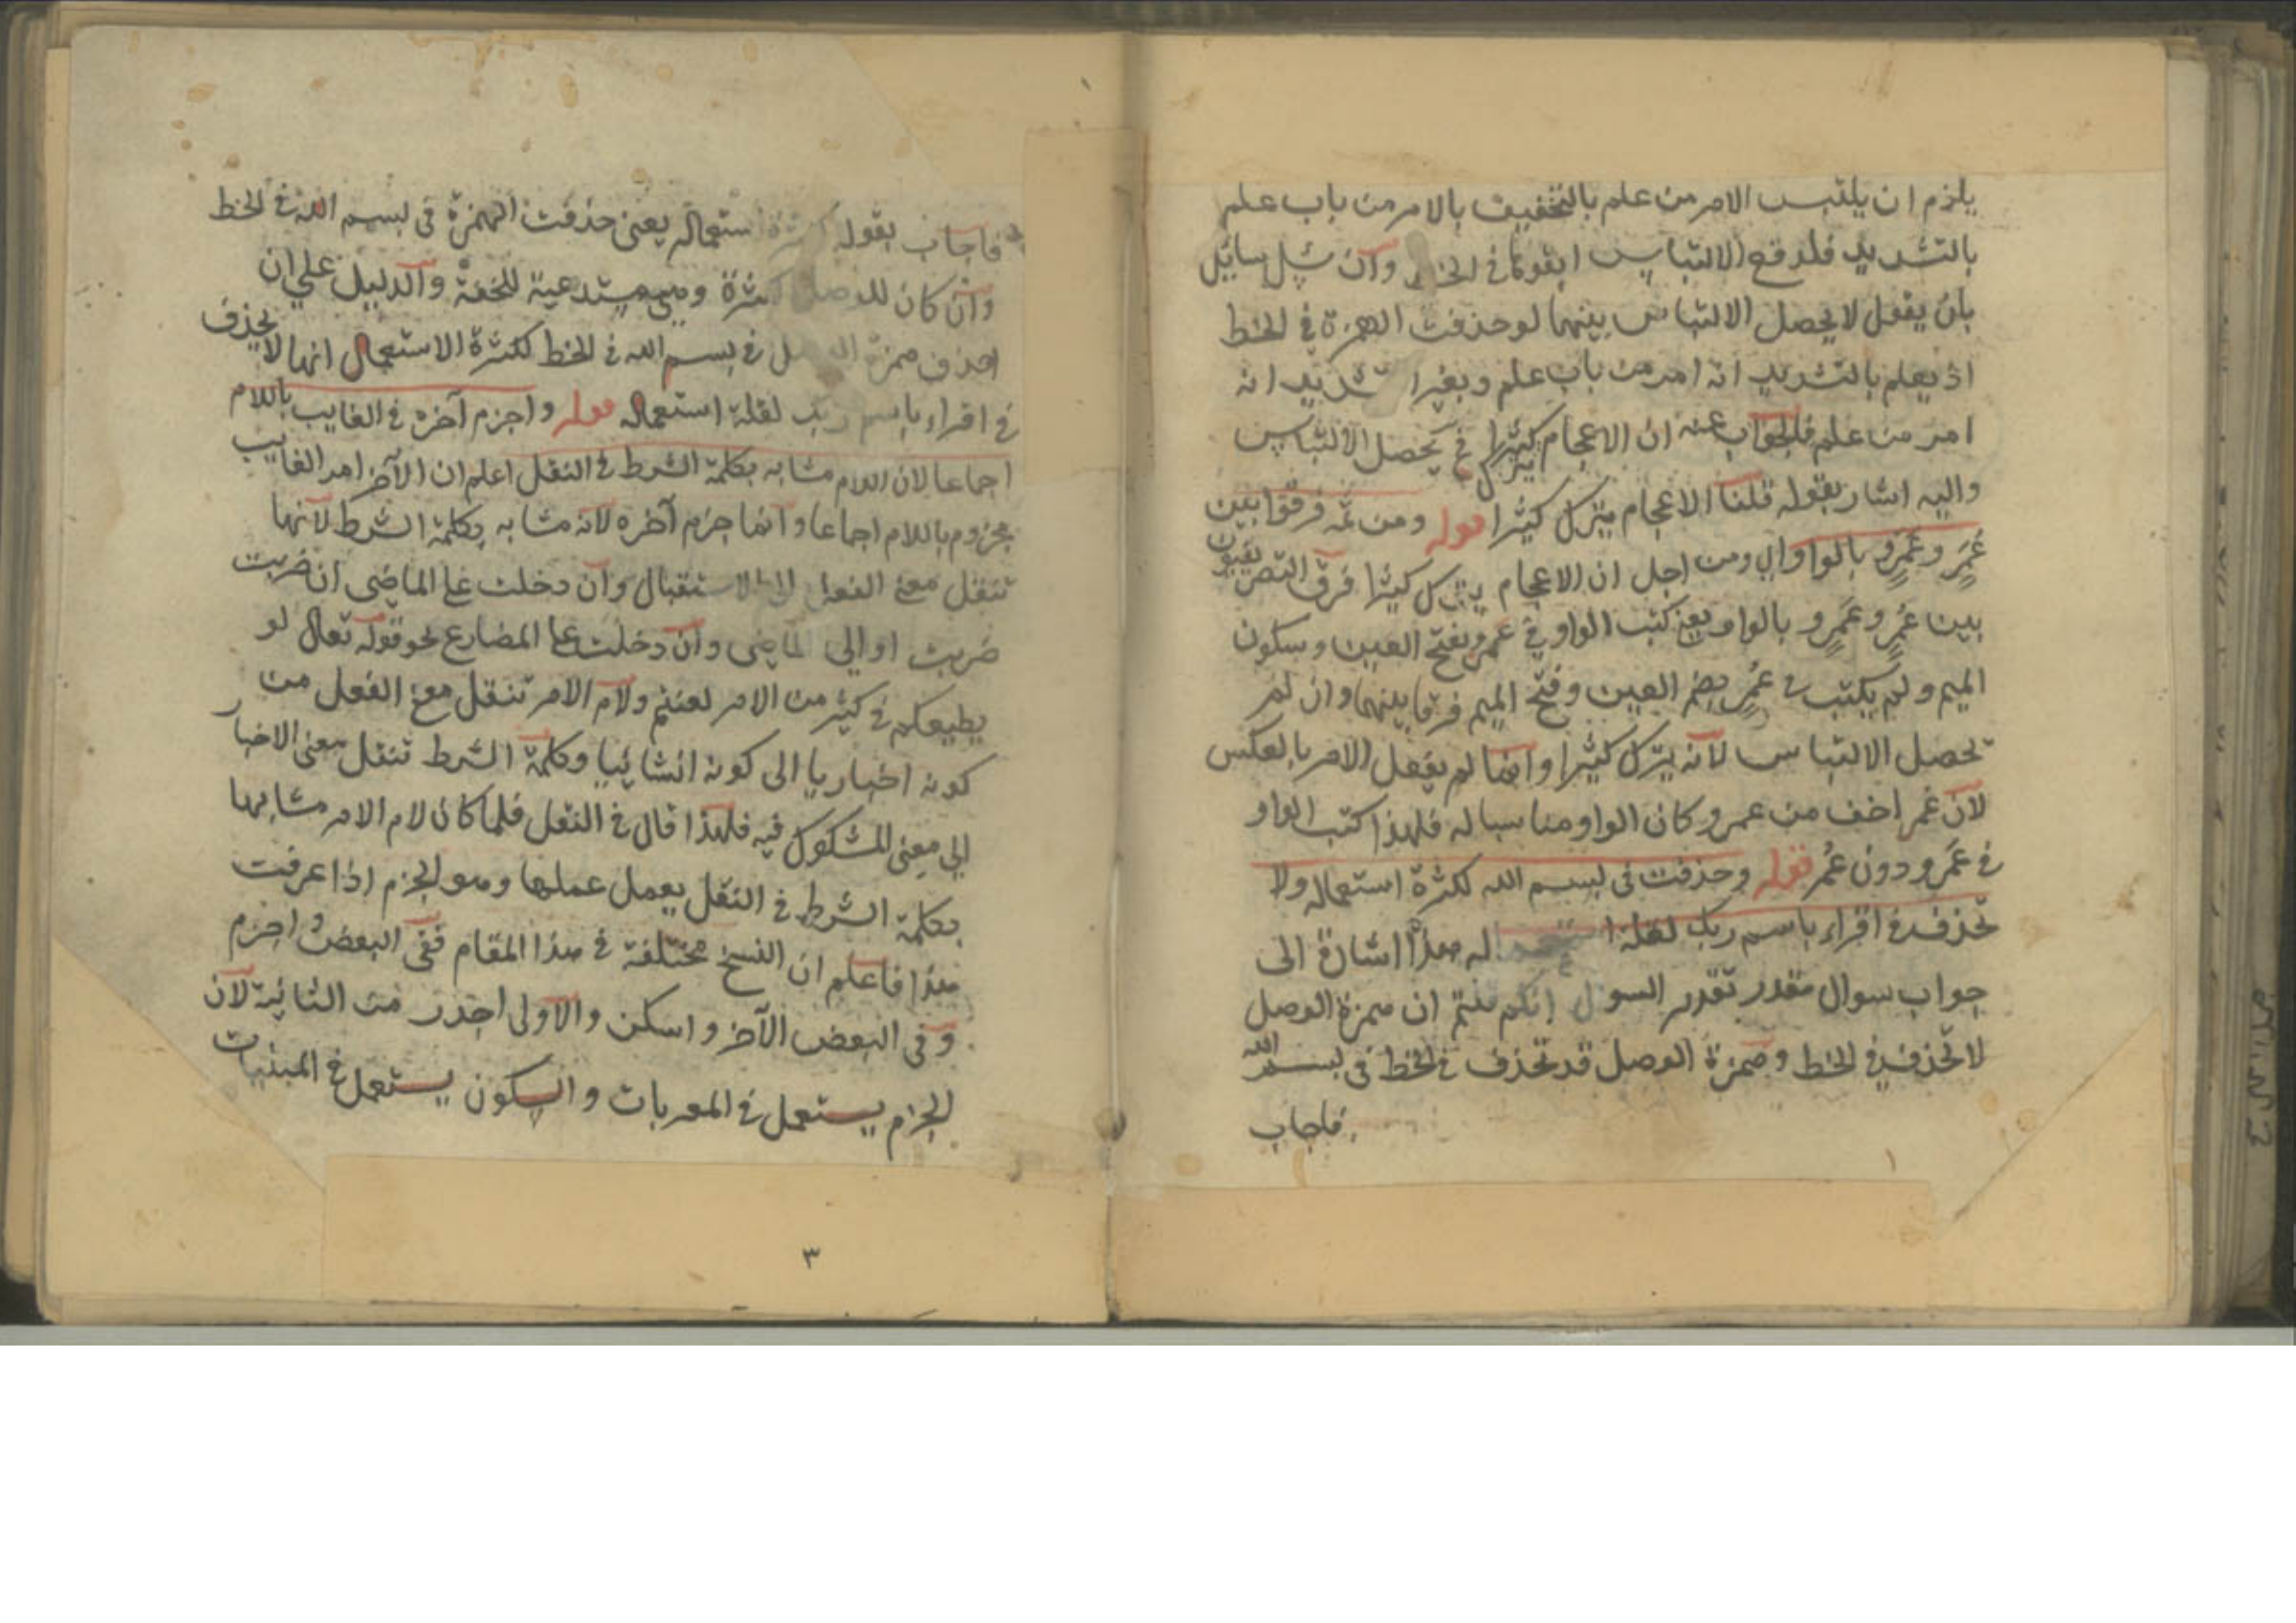 يلزم ان يلتبس الامر من علم بالتخفيف بالامر من باب علم
بالتشديد فلدفع الالتباس ابقوها في الخط وان سئل سائل
بان يقول لا يحصل الالتباس بينهما لو حذفت الهمزة في الخط
اذ يعلم بالتشديد انه امر من باب علم وبغير التشديد انه
امر من علم فالجواب عنه ان الاعجام يترك كثيرا فح يحصل الالتباس
واليه اشار بقوله قلنا الاعجام يترك كثيرا قوله ومن ثمه فرقوا بين
عُمَرَ وعَمْرٍو بالواو اي ومن اجل ان الاعجام يترك كثيرا فرق التصريفيون
بين عُمَر وعَمْرٍو بالواو يعني كتب الواو في عمرو بفتح العين وسكون
الميم ولم يكتب في عُمَر بضم العين وفتح الميم فرقا بينهما وان لم
يحصل الالتباس لانه يترك كثيرا وانما لم يفعل الامر بالعكس
لان عمر اخف من عمرو كان الواو مناسبا له فلهذا كتب الواو
في عَمرو دون عُمر قوله وحذفت في بسم الله لكثرة استعماله ولا
تحذف في اقراء باسم ربك لقلة استعماله هذا اشارة الى
جواب سوال مقدر تقدير السوال انكم قلتم ان همزة الوصل
لا تحذف في الخط وهمزة الوصل قد تحذف في الخط في بسم الله
فاجاب
فاجاب بقوله لكثرة استعماله يعني حذفت الهمزة في بسم الله في الخط
وان كان للوصل لكثرة وهي مستدعية للخفة والدليل على ان
حذف همزة الوصل في بسم الله في الخط لكثرة الاستعمال انها لا يحذف
في اقراء باسم ربك لقلة استعماله قوله واجزم آخره في الغايب باللام
اجماعا لان اللام مشابه بكلمة الشرط في النقل اعلم ان الآخر امر الغايب
مجزوم باللام اجماعا وانما جزم آخره لانه مشابه بكلمة الشرط لانها
تنقل معنى الفعل الى الاستقبال وان دخلت على الماضي ان ضربت
ضربت او الى الماضي وان دخلت على المضارع نحو قوله تعالى لو
يطيعكم في كثير من الامر لعنتم ولام الامر تنقل معنى الفعل من
كونه اخباريا الى كونه انشائيا وكلمة الشرط تنقل معنى الاخبار
الى معنى المشكوك فيه فلهذا قال في النقل فلما كان لام الامر مشابها
بكلمة الشرط في النقل يعمل عملها وهو الجزم اذا عرفت
هذا فاعلم ان النسخ مختلفة في هذا المقام ففي البعض واجزم
وفي البعض الآخر واسكن والاولى اجدر من الثانية لان
الجزم يستعمل في المعربات والسكون يستعمل في المبنيات
٣